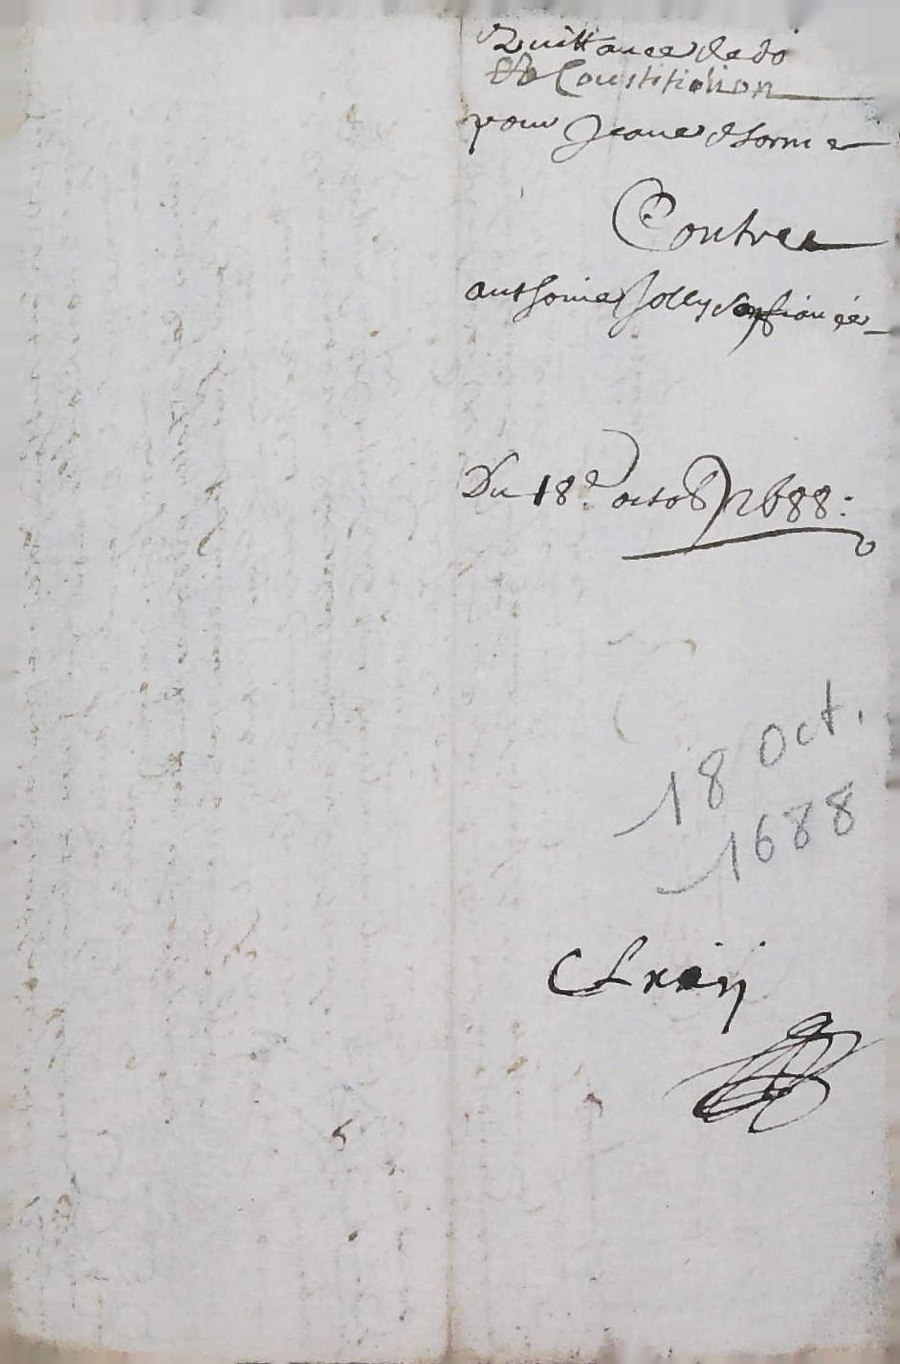 Quittance de do
et Constitution
pour Jeane
Contre
anthoine Jolly fiancée
Du 18e octob 1688:
18 Oct.
1688